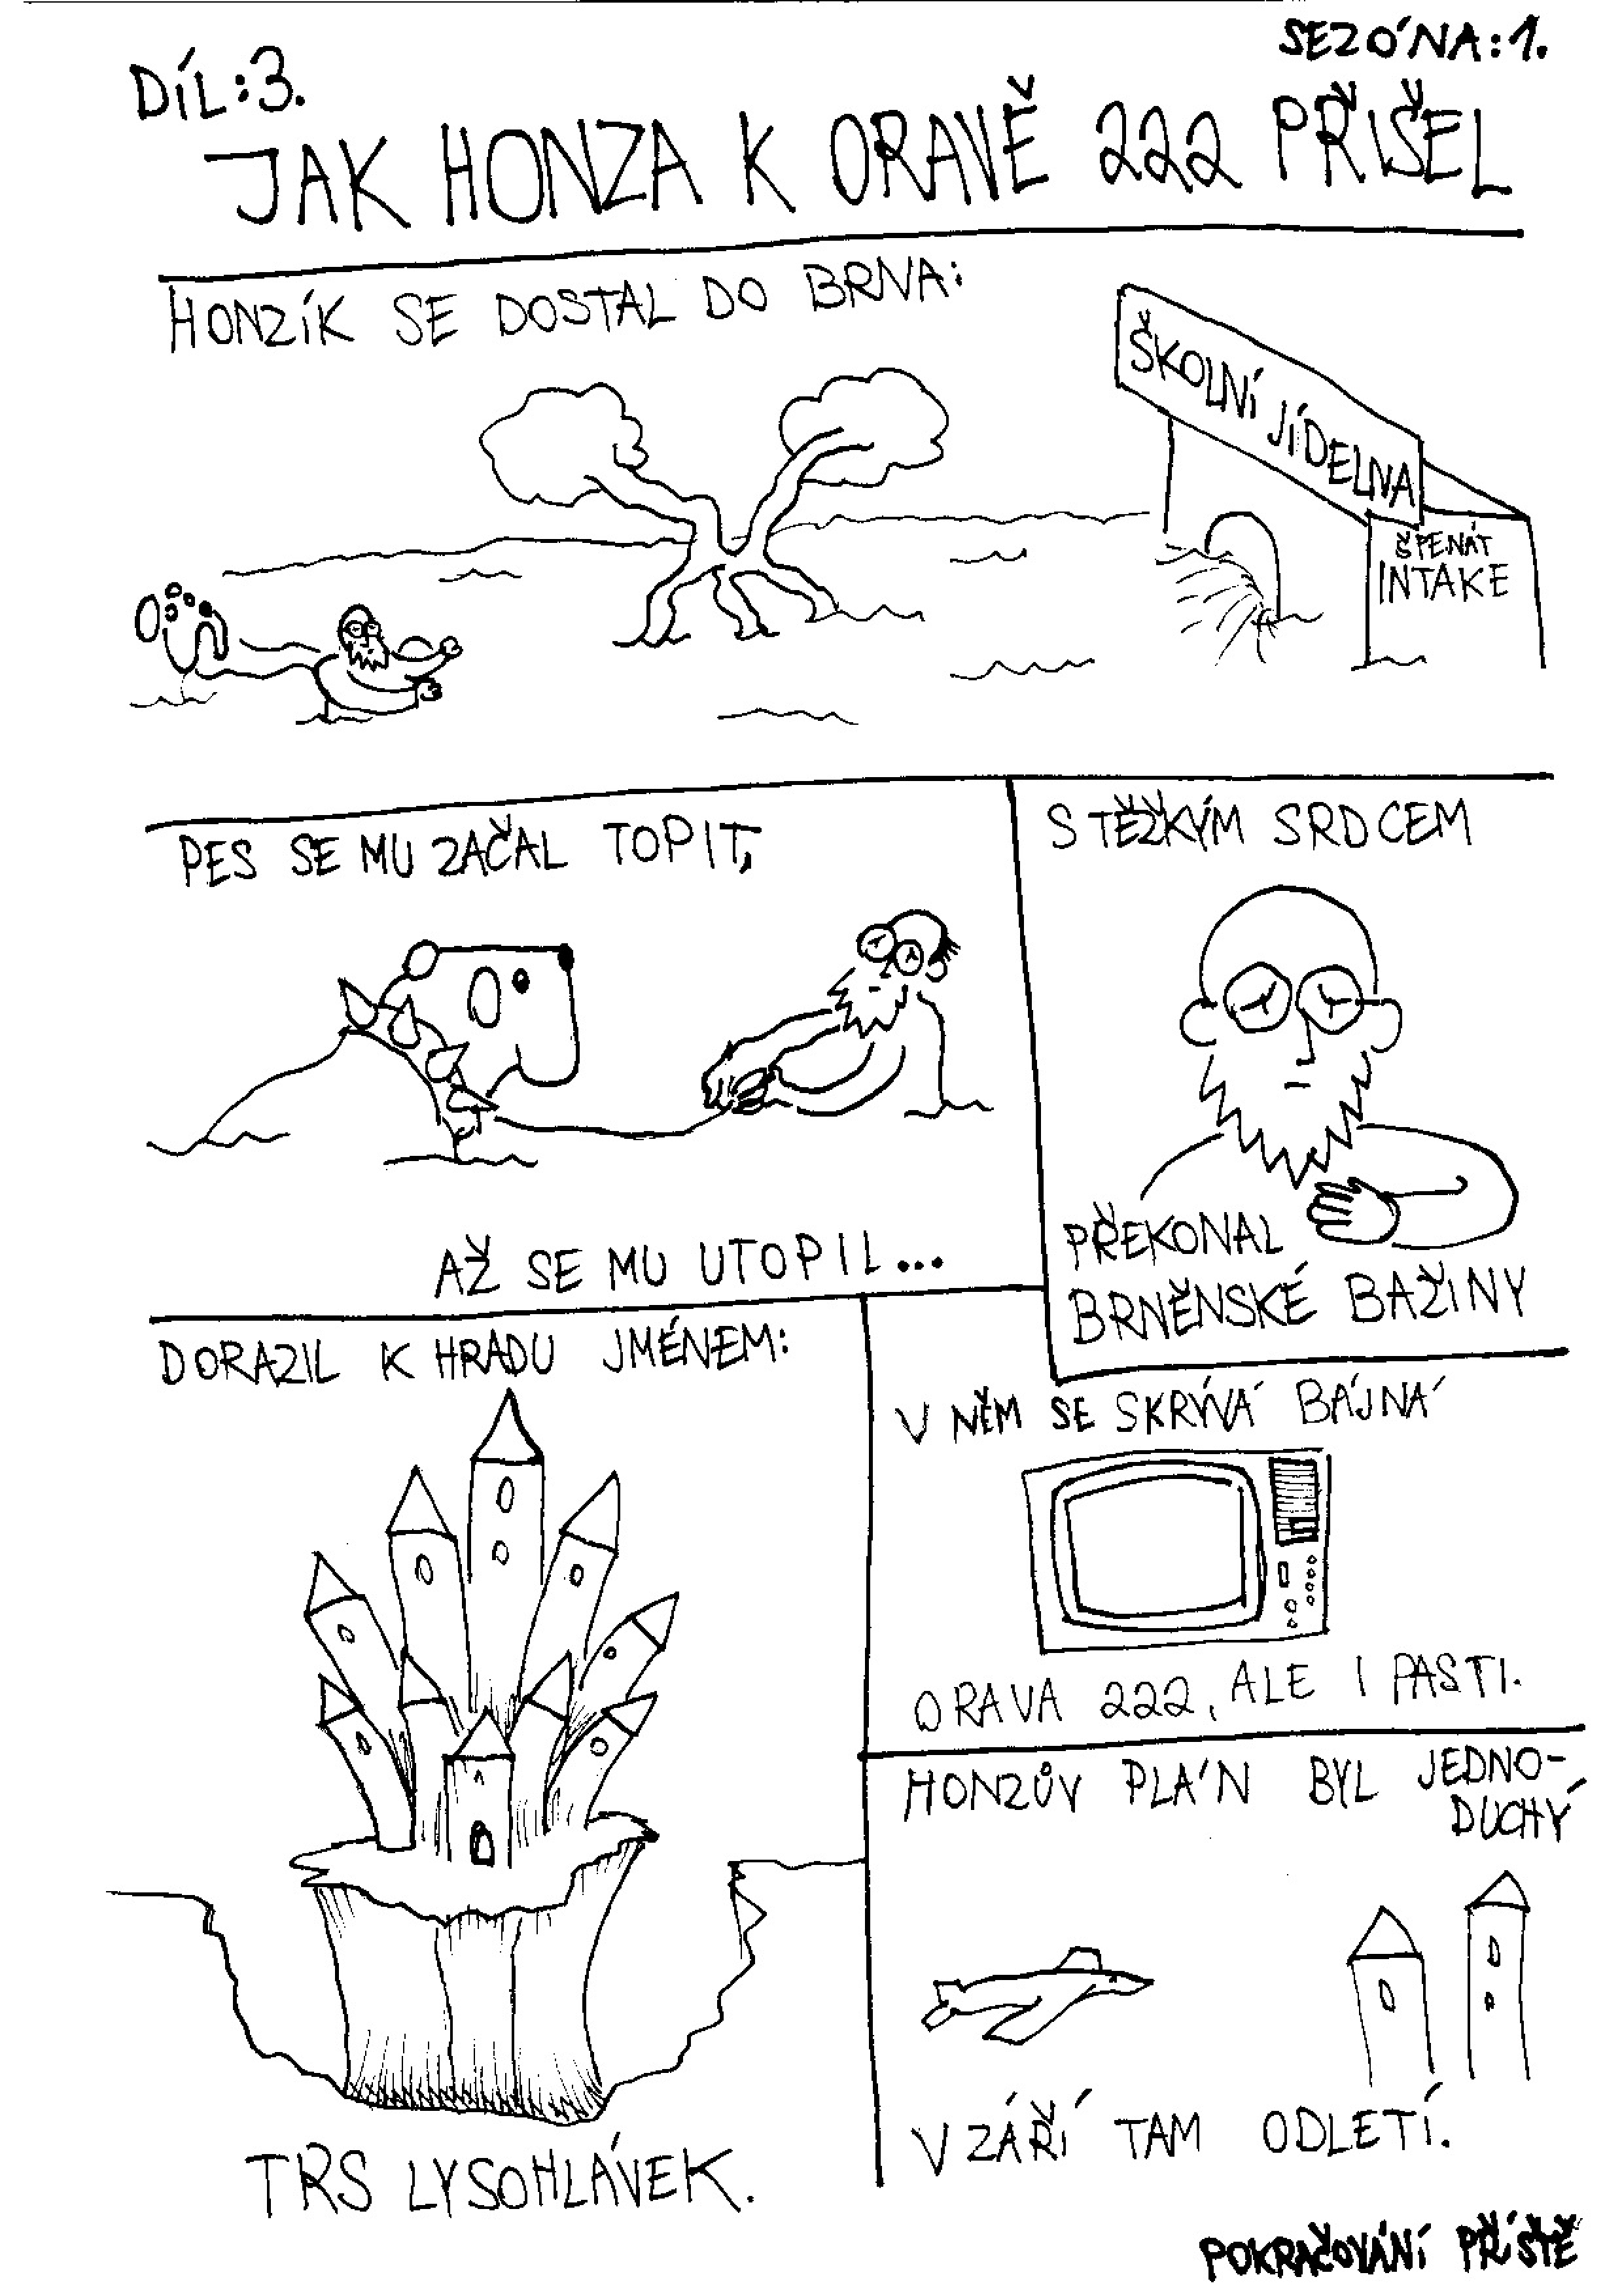 SEZÓNA:1.
DÍL:3.
JAK HONZA K ORAVĚ 222 PŘIŠEL
HONZÍK SE DOSTAL DO BRNA:
ŠKOLNÍ JÍDELNA
ŠPENÁT
INTAKE
PES SE MU ZAČAL TOPIT,
AŽ SE MU UTOPIL...
S TĚŽKÝM SRDCEM
PŘEKONAL
BRNĚNSKÉ BAŽINY
DORAZIL K HRADU JMÉNEM:
TRS LYSOHLÁVEK.
V NĚM SE SKRÝVÁ BÁJNÁ
ORAVA 222, ALE I PASTI.
HONZŮV PLÁN BYL JEDNO-
DUCHÝ
V ZÁŘÍ TAM ODLETÍ.
POKRAČOVÁNÍ PŘÍŠTĚ